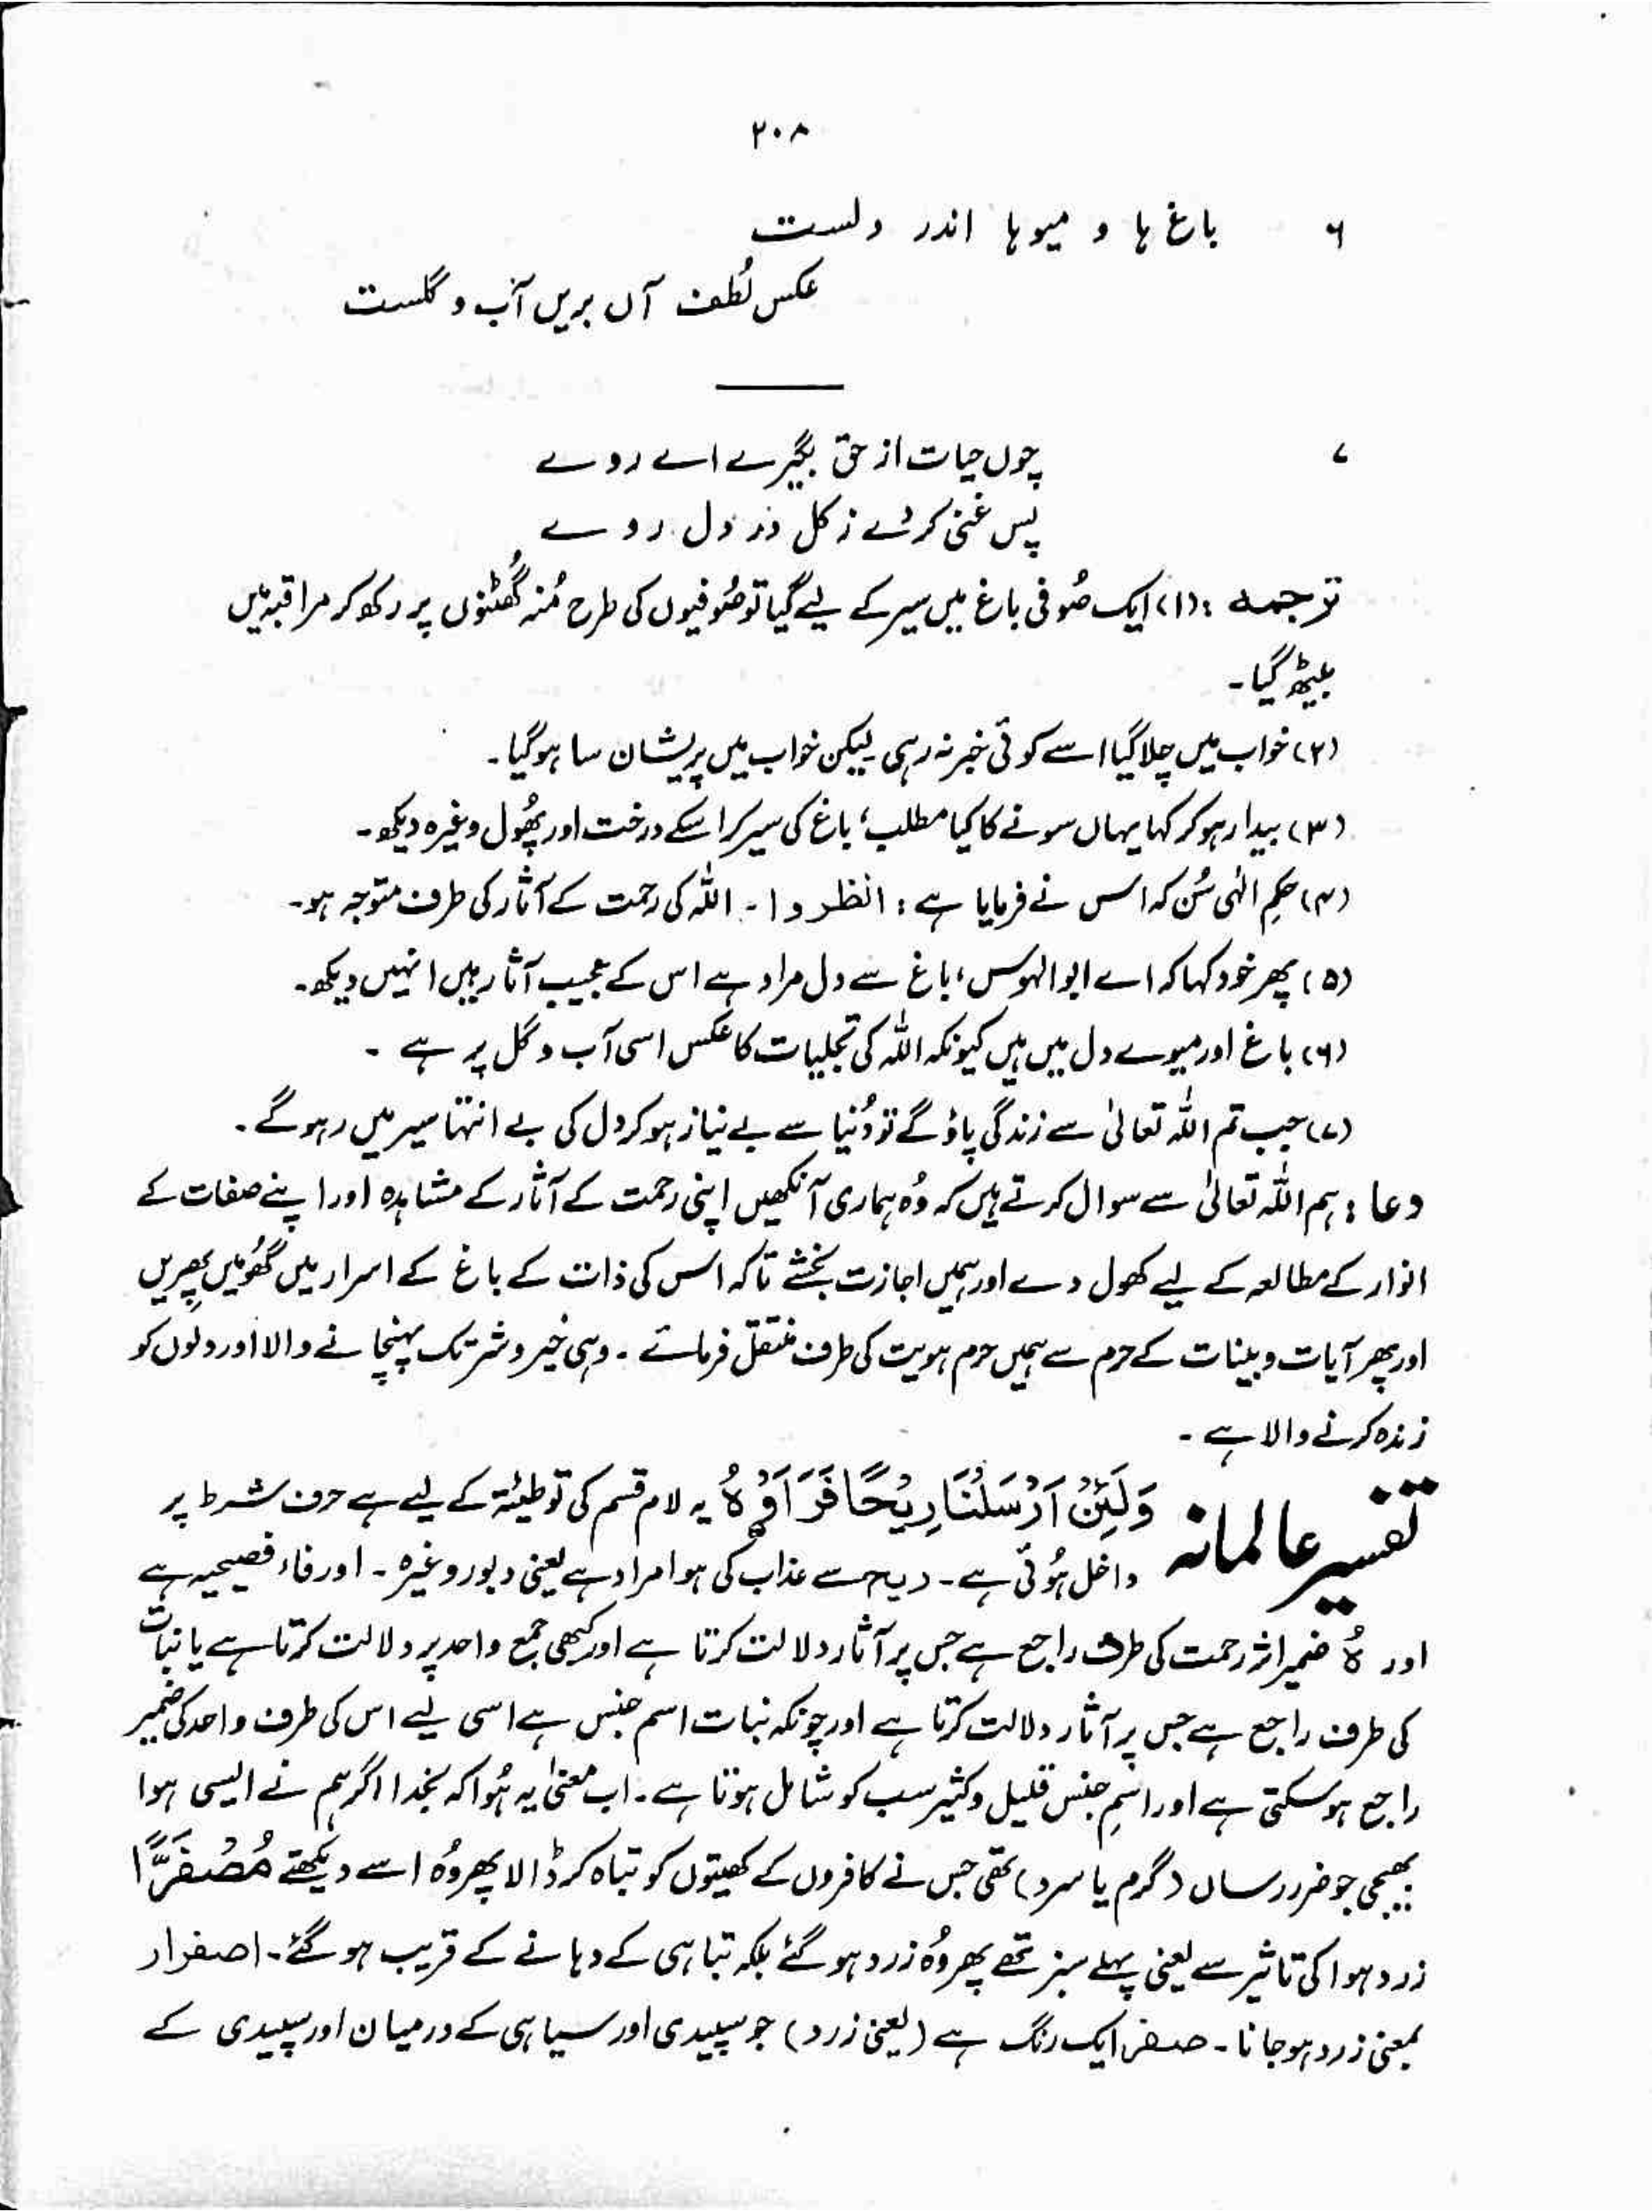 ۲۰۸
۶ باغ ہا و میوہا اندر دلست
عکس لُطف آں بریں آب و گلست
۷ چوں حیات از حق بگیرے اے روے
پس غنی کردے ز کل در دل روے
ترجمہ : (۱) ایک صُوفی باغ میں سیر کے لیے گیا تو صُوفیوں کی طرح مُنہ گھُٹنوں پر رکھ کر مراقبہ میں
بیٹھ گیا۔
(۲) خواب میں چلا گیا اسے کوئی خبر نہ رہی لیکن خواب میں پریشان سا ہوگیا۔
(۳) بیدار ہو کر کہا یہاں سونے کا کیا مطلب، باغ کی سیر کر اسکے درخت اور پھُول وغیرہ دیکھ۔
(۴) حکمِ الٰہی سُن کہ اس نے فرمایا ہے : انظروا ۔ اللہ کی رحمت کے آثار کی طرف متوجہ ہو۔
(۵) پھر خود کہا کہ اے ابوالہوس، باغ سے دل مراد ہے اس کے عجیب آثار ہیں انہیں دیکھ۔
(۶) باغ اور میوے دل میں ہیں کیونکہ اللہ کی تجلیات کا عکس اسی آب و گل پر ہے ۔
(۷) جب تم اللہ تعالیٰ سے زندگی پاؤ گے تو دُنیا سے بے نیاز ہو کر دل کی بے انتہا سیر میں رہو گے ۔
دعا : ہم اللہ تعالیٰ سے سوال کرتے ہیں کہ وُہ ہماری آنکھیں اپنی رحمت کے آثار کے مشاہدہ اور اپنے صفات کے
انوار کے مطالعہ کے لیے کھول دے اور ہمیں اجازت بخشے تاکہ اس کی ذات کے باغ کے اسرار میں گھُومیں پھریں
اور پھر آیات و بینات کے حرم سے ہمیں حرم ہویت کی طرف منتقل فرمائے ۔ وہی خیر و شر تک پہنچانے والا اور دلوں کو
زندہ کرنے والا ہے ۔
تفسیر عالمانہ وَلَئِنْ اَرْسَلْنَا رِیْحًا فَرَاَوْہُ یہ لام قسم کی توطیئۃ کے لیے ہے حرف شرط پر
داخل ہُوئی ہے۔ ریح سے عذاب کی ہوا مراد ہے یعنی دبور وغیرہ ۔ اور فاء فصیحیہ ہے
اور ہٗ ضمیر اثر رحمت کی طرف راجع ہے جس پر آثار دلالت کرتا ہے اور کبھی جمع واحد پر دلالت کرتا ہے یا نبات
کی طرف راجع ہے جس پر آثار دلالت کرتا ہے اور چونکہ نبات اسم جنس ہے اسی لیے اس کی طرف واحد کی ضمیر
راجع ہو سکتی ہے اور اسمِ جنس قلیل و کثیر سب کو شامل ہوتا ہے ۔ اب معنیٰ یہ ہُوا کہ بخدا اگر ہم نے ایسی ہوا
بھیجی جو ضرر رساں (گرم یا سرد) تھی جس نے کافروں کے کھیتوں کو تباہ کر ڈالا پھر وُہ اسے دیکھتے مُصْفَرًّا
زرد ہوا کی تاثیر سے یعنی پہلے سبز تھے پھر وُہ زرد ہو گئے بلکہ تباہی کے دہانے کے قریب ہو گئے۔ اصفرار
بمعنی زرد ہو جانا ۔ صفر ایک رنگ ہے (یعنی زرد) جو سپیدی اور سیاہی کے درمیان اور سپیدی کے